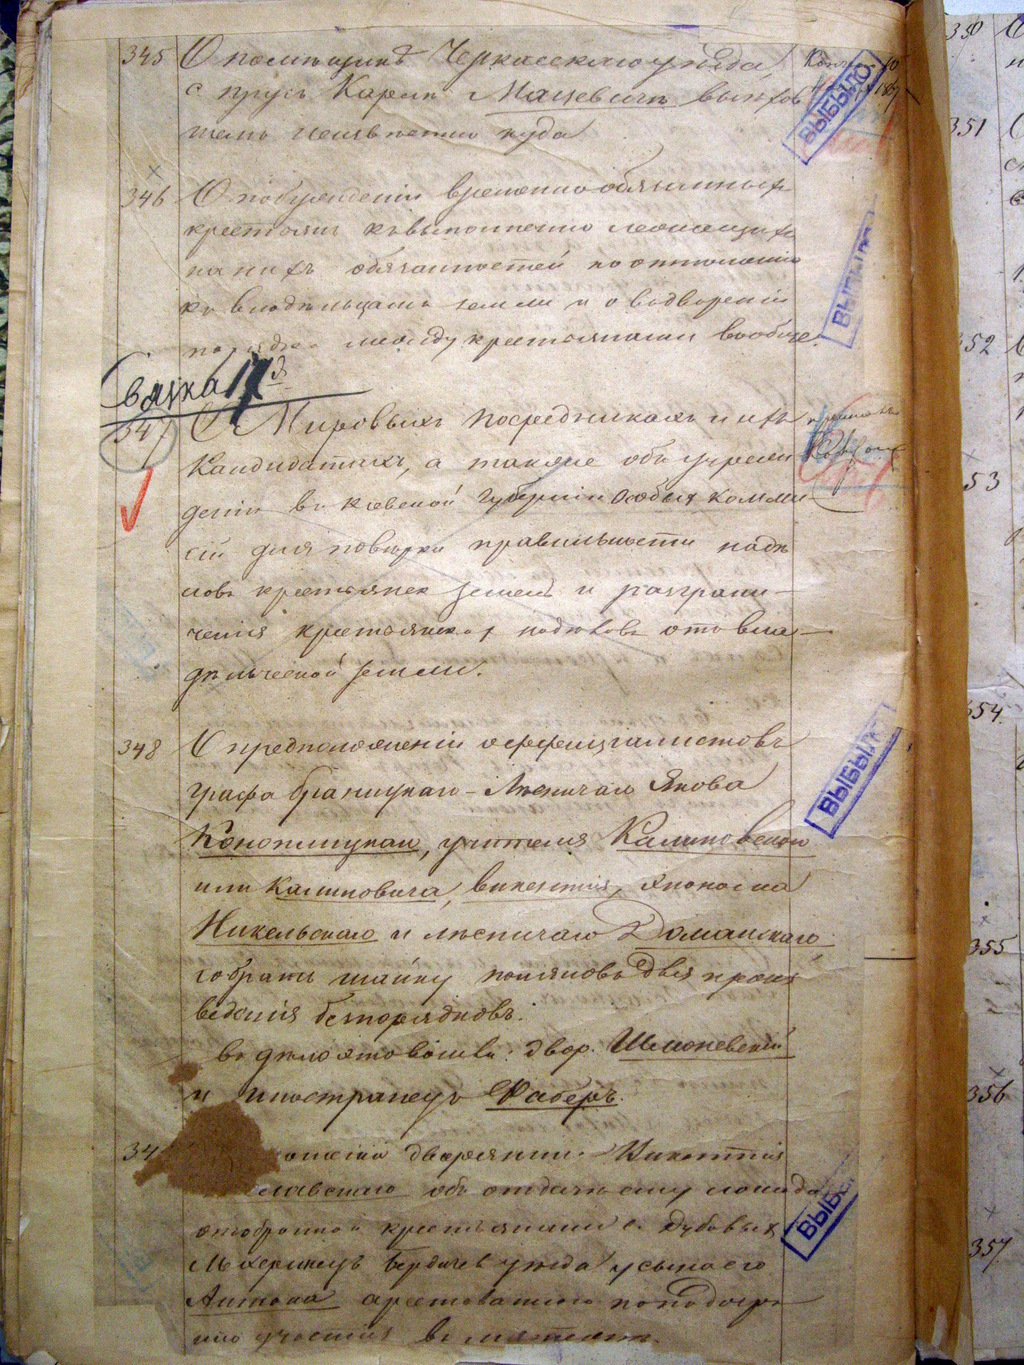 345 О помещикѣ Черкасскаго уѣзда
с. Карлѣ Мацевичѣ
неизвѣстно куда
ВЫБЫЛО
346 О побужденіи временно обязанныхъ
крестьянъ къ выполненію лежащихъ
на нихъ обязанностей по отношенію
къ владѣльцамъ земли и о водвореніи
порядка между крестьянами вообще.
ВЫБЫЛО
Связка 17я
347 О Мировыхъ посредникахъ и ихъ
Кандидатахъ, а также объ учреж
деніи въ Кіевской Губерніи особыхъ комми
сій для повѣрки правильности надѣ
ловъ крестьянск. землею и разграни-
ченія крестьянскихъ надѣловъ отъ вла-
дѣльческой земли.
348 О предположеніи оффиціалистовъ
Графа Браницкаго - Лѣсничаго Якова
Конопницкаго, учителя Калиновскаго
или Калиновича, Викентія, эконома
Никельскаго и лѣсничаго Доманскаго
собрать шайку поляковъ для произ
веденія безпорядковъ.
въ дѣло это вошли: двор. Шмоневскій
и иностранецъ Фаберъ.
ВЫБЫЛО
34 дворянин. Викентія
объ отдачѣ ему лошади
отобранной крестьянами с. Дубовыхъ
Махаринецъ Бердичев уѣзда у сына его
Антона арестованнаго по подозрѣ
нію участія въ мятежѣ.
ВЫБЫ
350
351
352
353
354
355
356
357